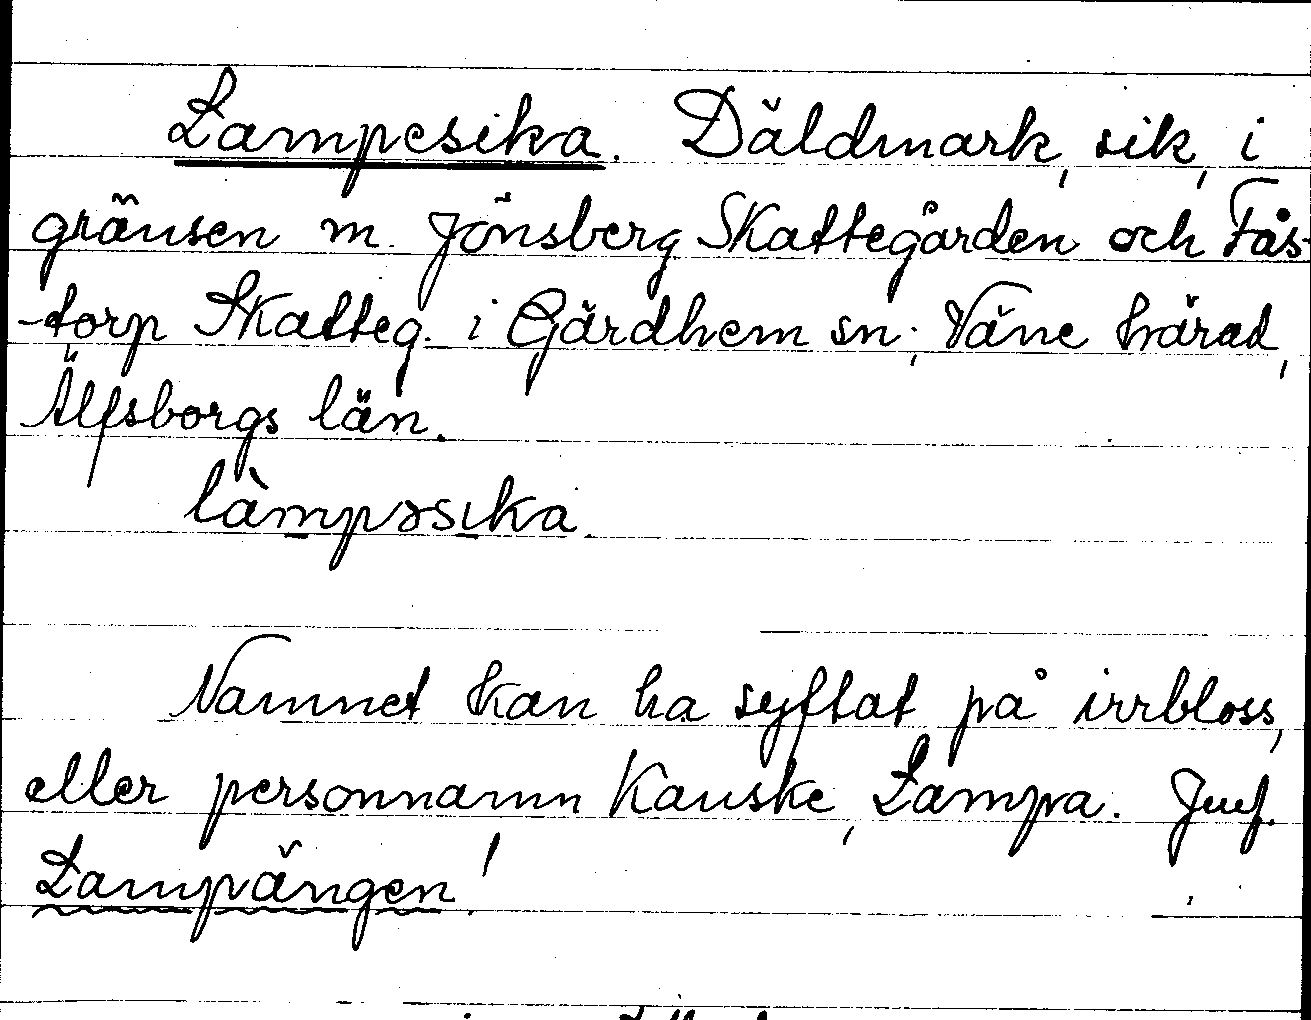 Lampesika. Däldmark, sik, i
gränsen m. Jönsberg Skattegården och Fås-
-torp Skatteg. i Gärdhem sn; Väne härad,
Älfsborgs län.
làmpəsıka.
Namnet kan ha syftat på irrbloss,
eller personnamn Kanske, Lampa. Jmf.
Lampängen!